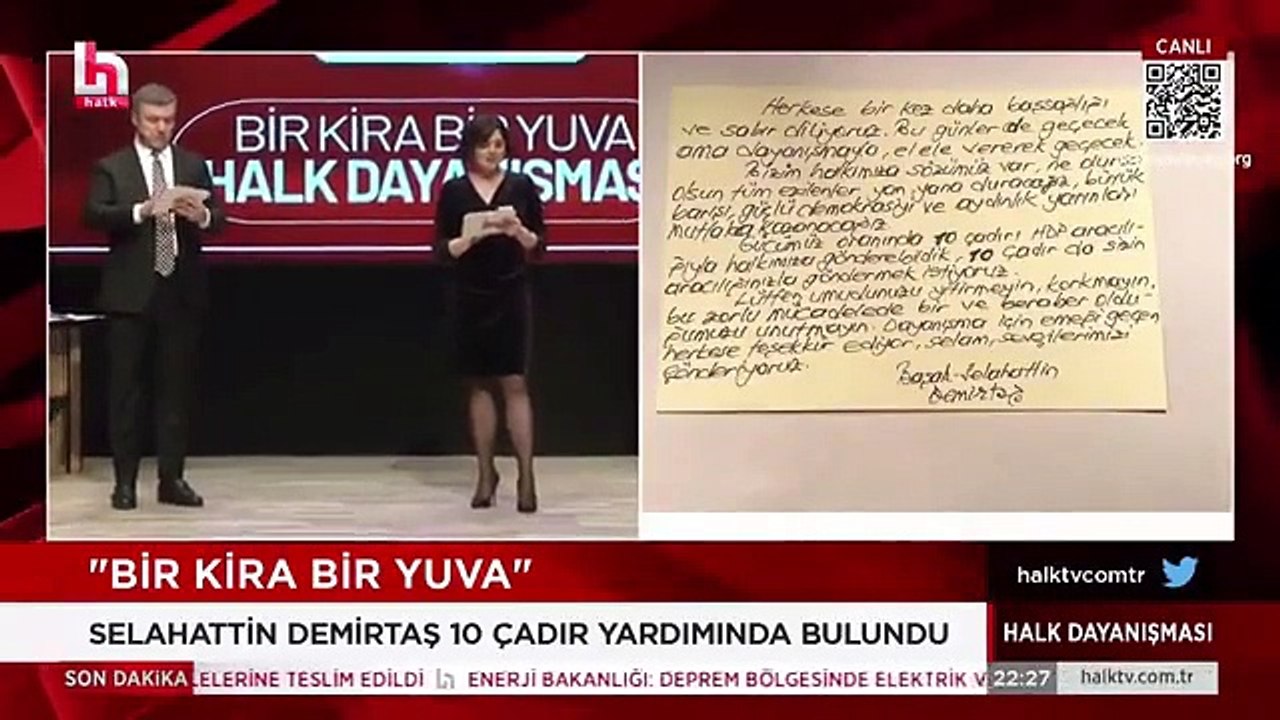 h
halk
CANLI
BİR KİRA BİR YUVA
HALK DAYANIŞMASI
Herkese bir kez daha başsağlığı
ve sabır diliyoruz. Bu günler de geçecek
ama dayanışmayla, el ele vererek geçecek.
Bizim halkımıza sözümüz var, ne olursa
olsun tüm ezilenler, yan yana duracağız, büyük
barışı, güçlü demokrasiyi ve aydınlık yarınları
mutlaka kazanacağız
Gücümüz oranında 10 çadırı HDP aracılı-
ğıyla halkımıza gönderebildik, 10 çadır da sizin
aracılığınızla göndermek istiyoruz.
Lütfen umudunuzu yitirmeyin, korkmayın,
bu zorlu mücadelede bir ve beraber oldu-
ğumuzu unutmayın. Dayanışma için emeği geçen
herkese teşekkür ediyor, selam, sevgilerimizi
gönderiyoruz.
Başak-Selahattin
Demirtaş
"BİR KİRA BİR YUVA"
halktvcomtr
SELAHATTİN DEMİRTAŞ 10 ÇADIR YARDIMINDA BULUNDU
HALK DAYANIŞMASI
SON DAKİKA LELERİNE TESLİM EDİLDİ h ENERJİ BAKANLIĞI: DEPREM BÖLGESİNDE ELEKTRİK V 22:27 halktv.com.tr